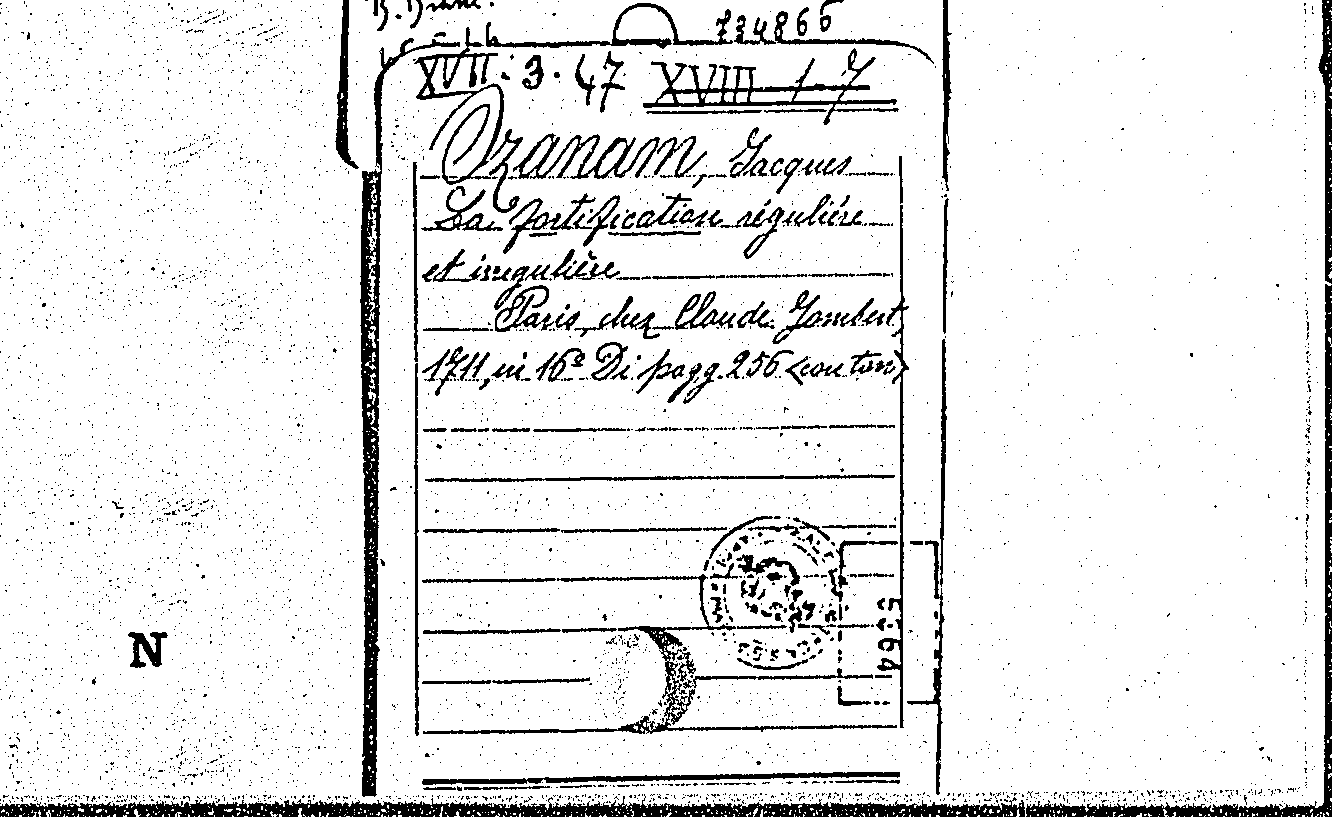 734866
XVII. 3. 47 XVIII 1 7
Ozanam, Jacques
La fortification régulière
et irregulière
Paris, chez Claude Jombert,
1711, in 16º Di pagg. 256 <con tav>
5564
N